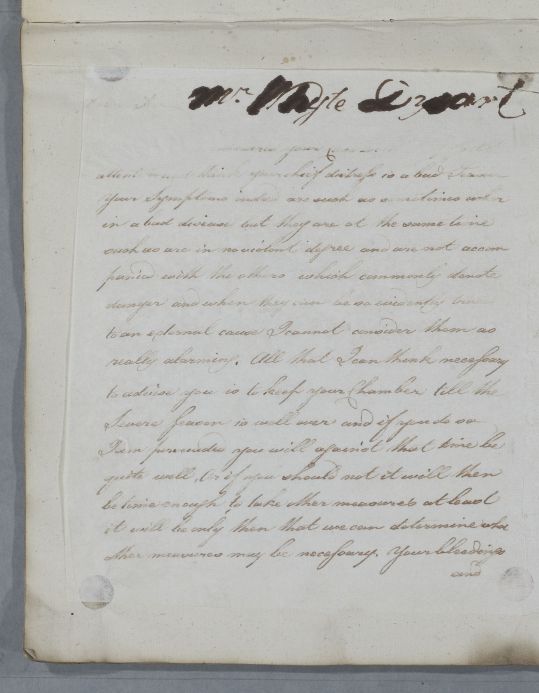 Mr. Whyte
your
attent think your chief distress is a bad
Your Symptoms indeed are such as sometimes occur
in a bad disease but they are at the same time
such as are in no violent degree and are not accom
panied with the others which commonly denote
danger and when they can be so evidently
to an external cause I cannot consider them as
really alarming. All that I can think necessary
to advise you is to keep your Chamber till the
Severe Season is well over and if you do so
I am persuaded you will against that time be
quite well, or if you should not it will then
be time enough to take other measures at least
it will be only then that we can determine what
other measures may be necessary. Your bleedings
and